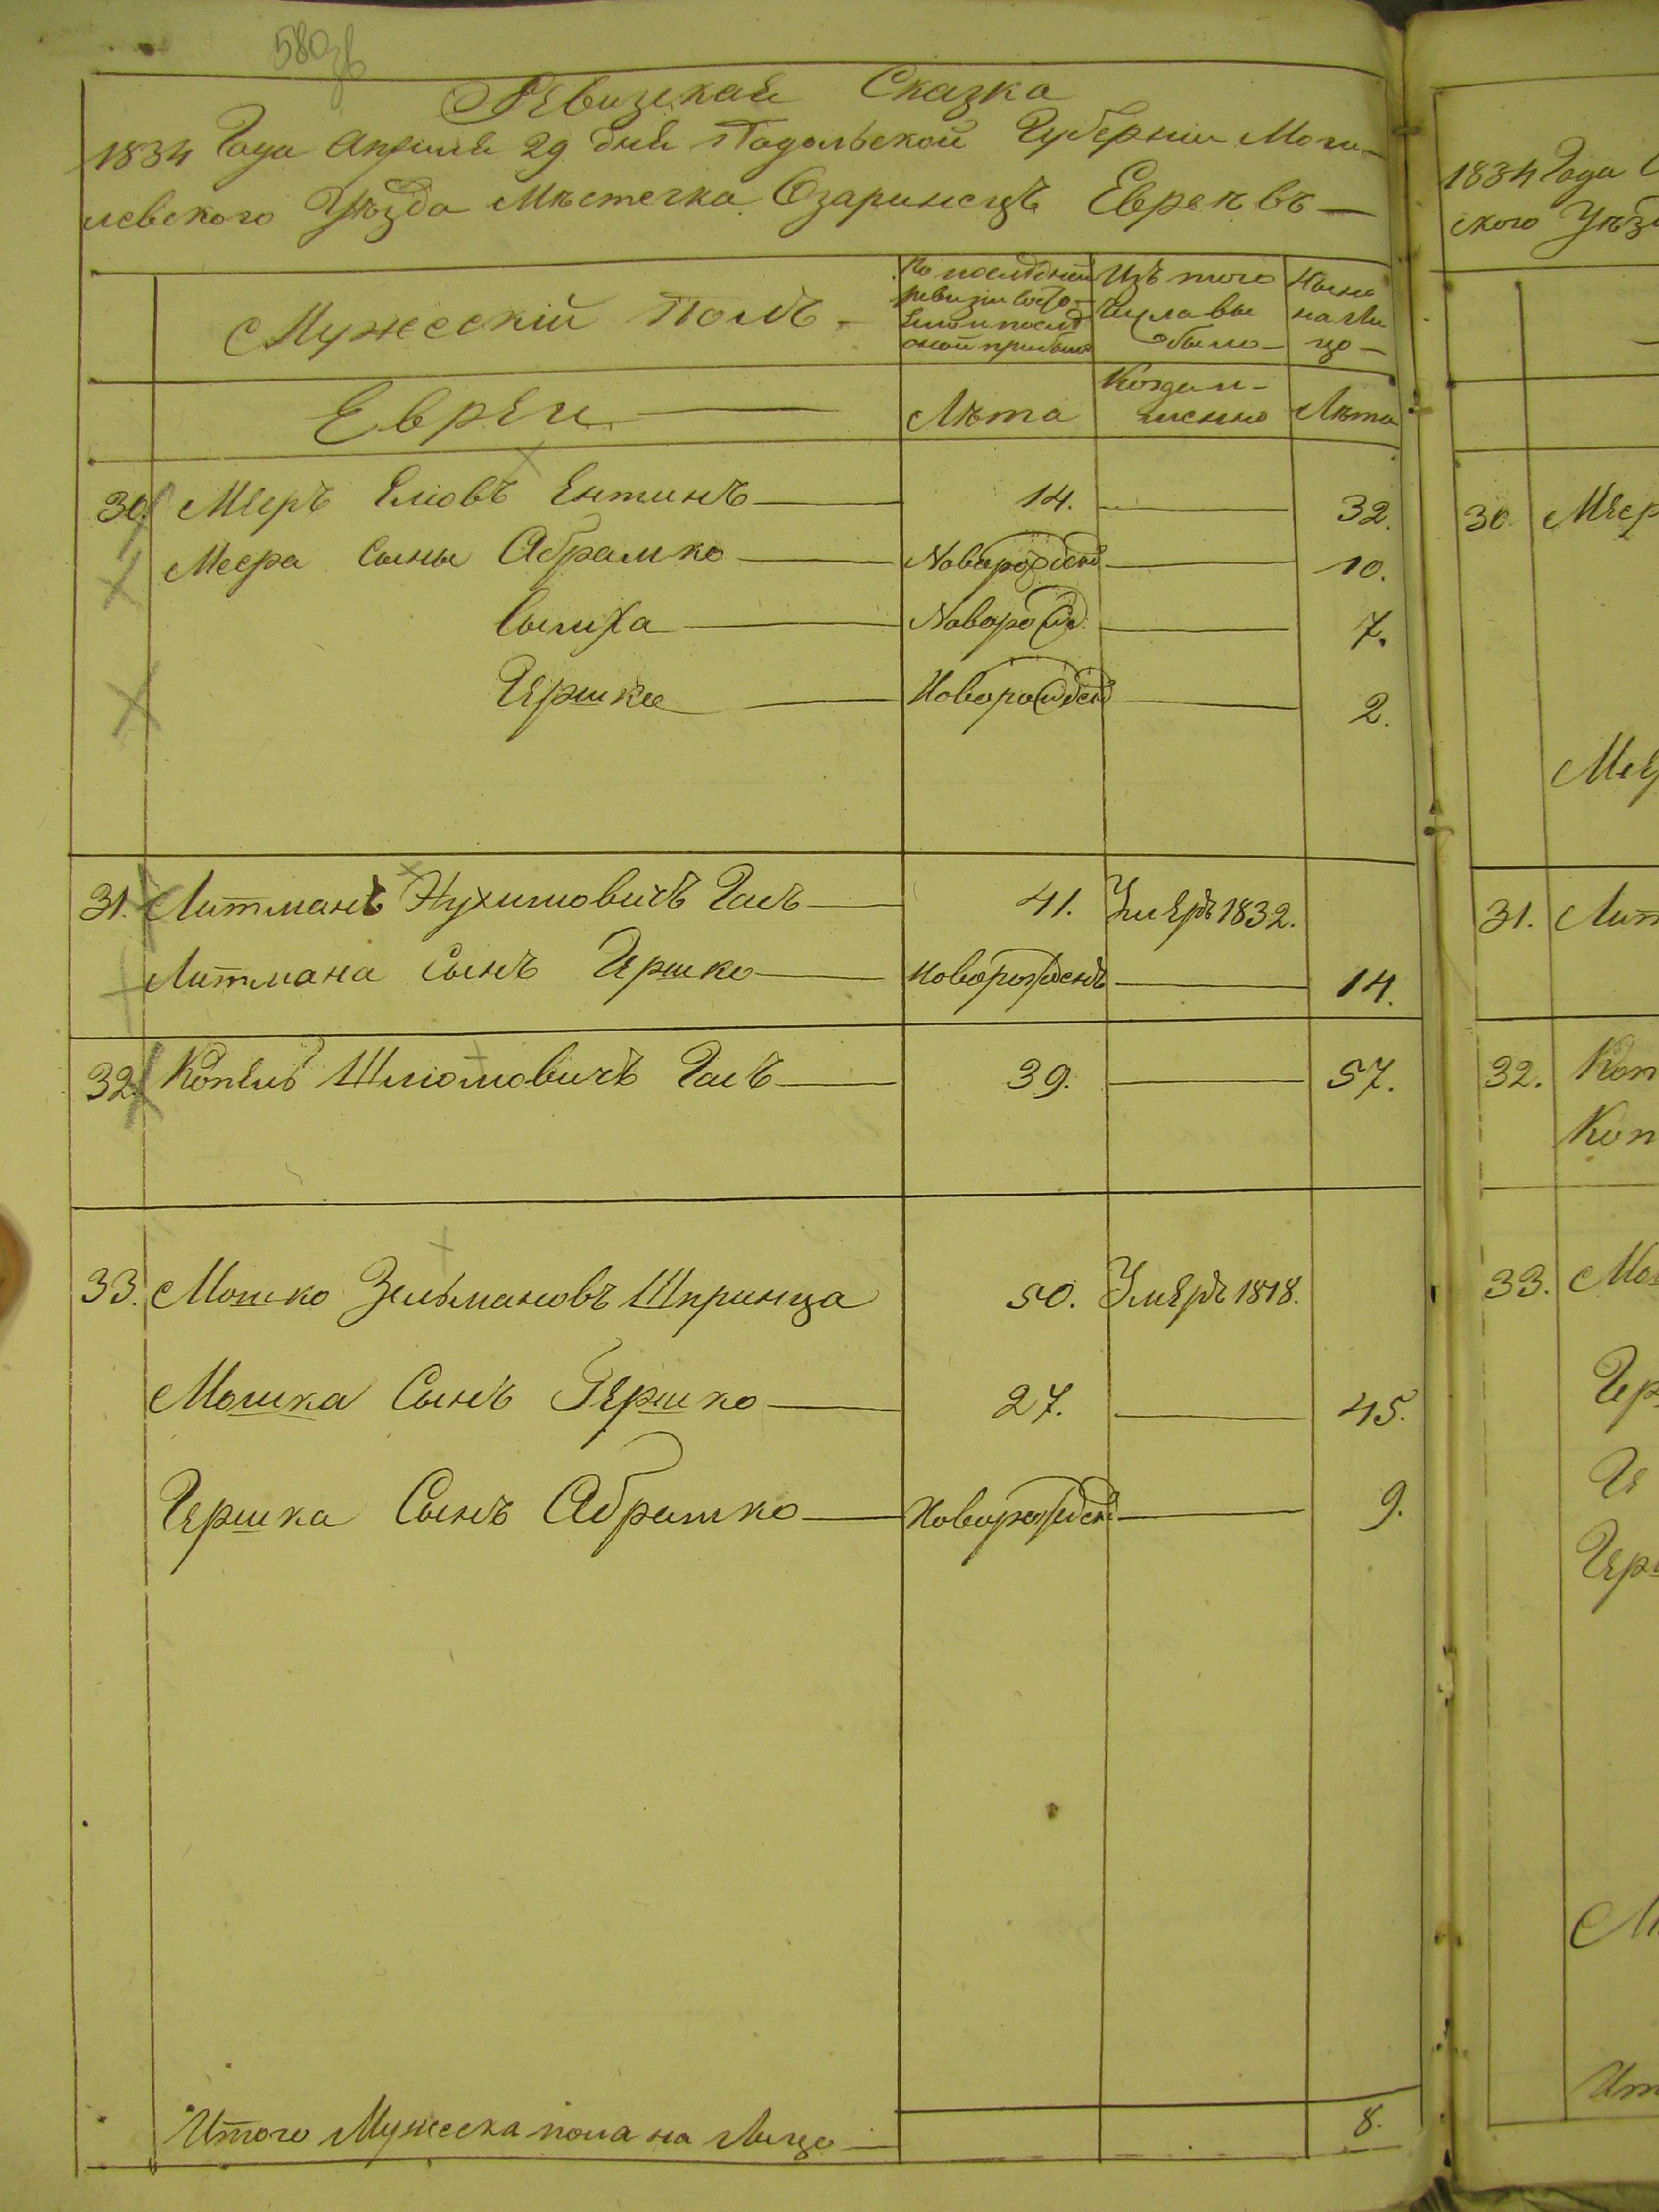 580зв
Ревизская Сказка
1834 Года Апреля 29 дня Подольской Губернии Моги-
левского Уѣзда Мѣстечка Озаринецъ Евреѣвъ
Мужеский Полъ
По последней
ревизии состо-
яло и послѣ
оной прибыло
Изъ того
Числа вы
было
Ныне
на Ли
цо
Евреи
Лѣта
Когда и-
менно
Лѣта
30. Мееръ Елiовъ Ентинъ 14. 32.
Меера Сыны Абрамко Новорожденъ 10.
Сымха Новорожд. 7.
Гершко Новорожден 2.
31. Литманъ Нухимовичъ Гасъ 41. Умеръ 1832.
Литмана Сынъ Гершко новорожденъ 14.
32. Копель Шлiомовичъ Гасъ 39. 57.
33. Мошко Зельмановъ Шпринца 50. Умеръ 1818.
Мошка Сынъ Гершко 27. 45.
Гершка Сынъ Абрамко Новорожден 9.
Итого Мужеска пола на Лицо 8.
1834 Года
ского Уѣз
30. Меер
31. Лит
32. Коп
Коп
33. Мо
Гер
Ге
Герш